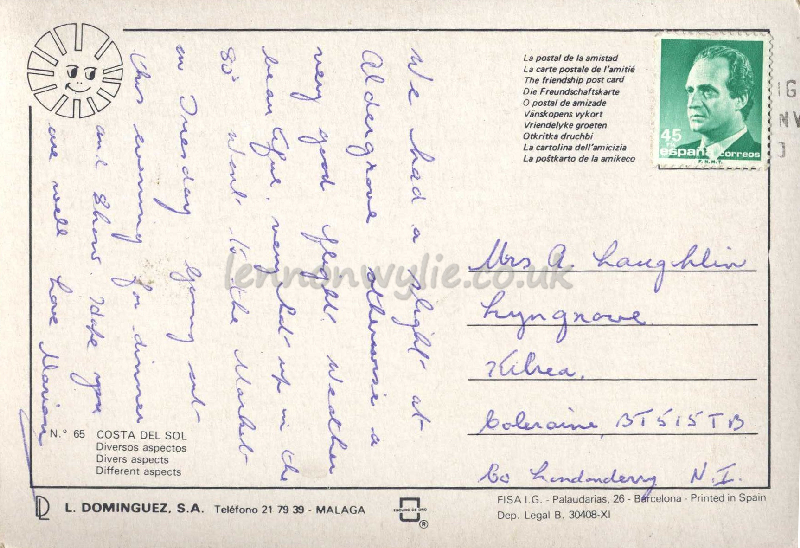 We had a slight at
Aldergrove otherwise a
very good flight. Weather
beautiful. very hot up in the
80's Went to the Market
on Tuesday Going out
this evening for dinner
and Show. Hope you
are well Love Marion
La postal de la amistad
La carte postale de l'amitié
The friendship post card
Die Freundschaftskarte
O postal de amizade
Vänskopens vykort
Vriendelyke groeten
Otkritka druchbi
La cartolina dell'amicizia
La poŝtkarto de la amikeco
45
españa correos
F.N.M.T.
Mrs A. Laughlin
Lyngrove
Kilrea,
Coleraine BT515TB
Co Londonderry N.I.
lennonwylie.co.uk
N.° 65 COSTA DEL SOL
Diversos aspectos
Divers aspects
Different aspects
L. DOMINGUEZ, S.A. Teléfono 21 79 39 - MALAGA
®
FISA I.G. - Palaudarias, 26 - Barcelona - Printed in Spain
Dep. Legal B. 30408-XI